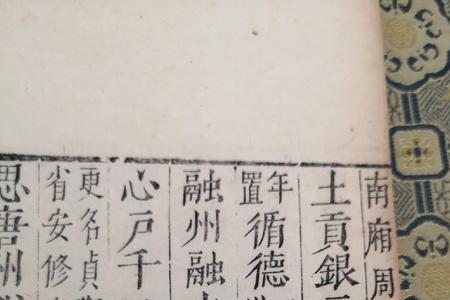 南廂周
土貢銀
年
置
循德
融州融
心戸千
更名貞
省安修
思唐州